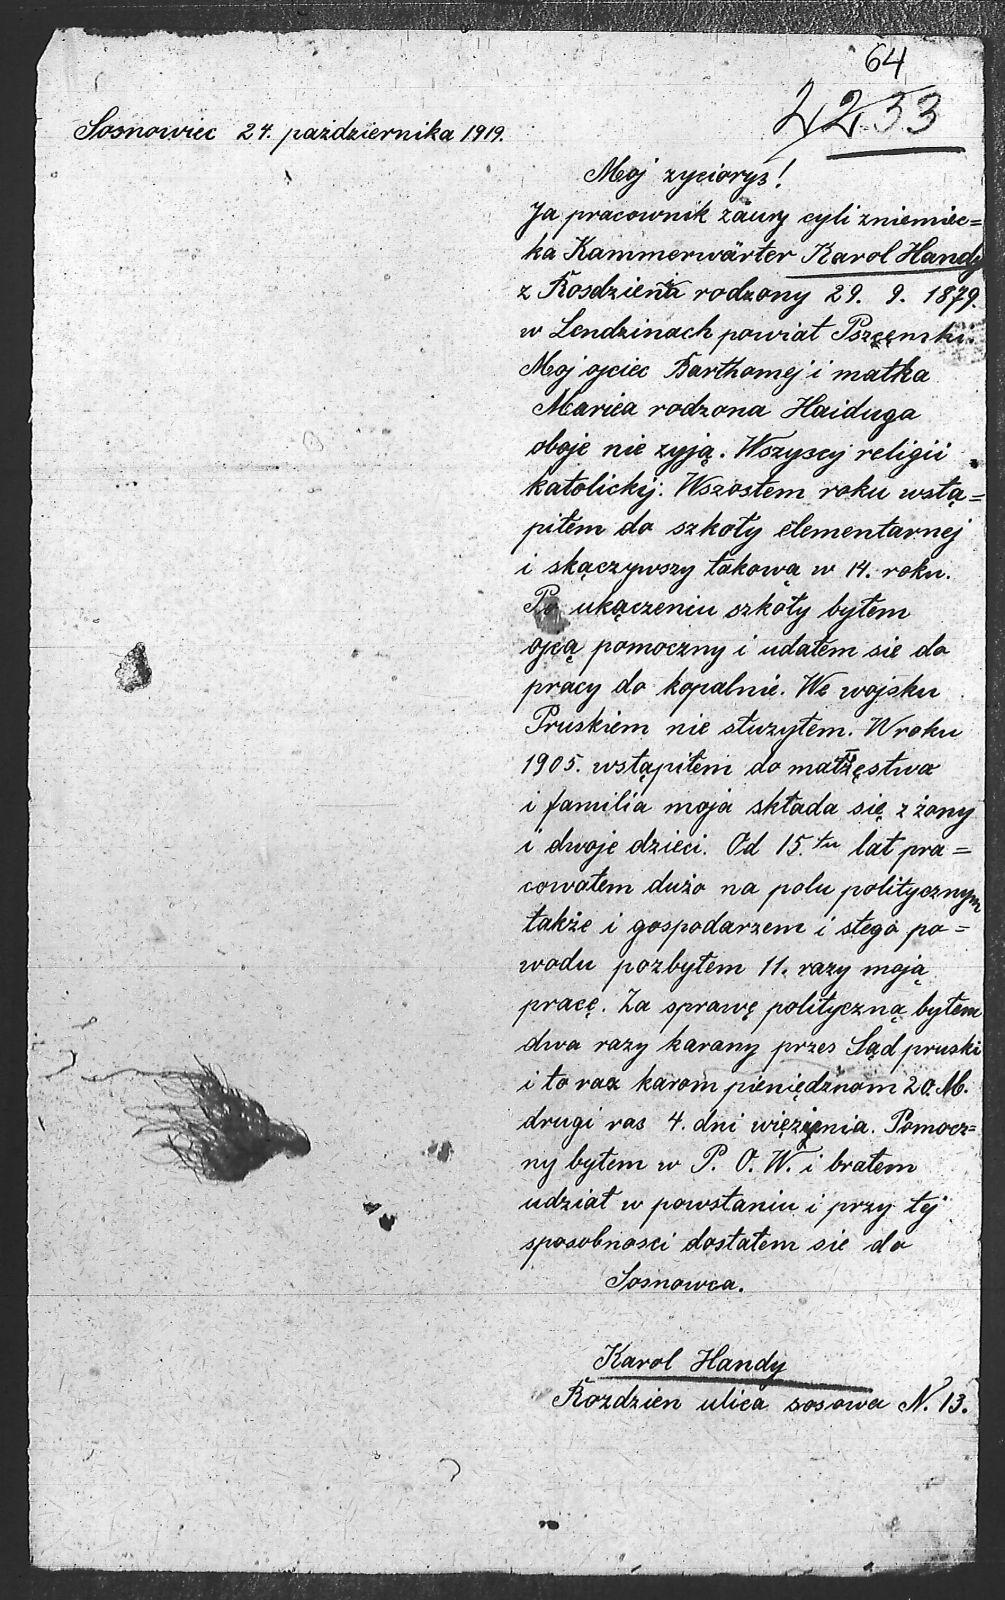 64
2233
Sosnowiec 24. października 1919.
Moj zyciorys!
Ja pracownik zaury cyli zniemiec=
ka Kammerwärter Karol Handy
z Rosdziena rodzony 29. 9. 1879.
w Lendzinach powiat
Moj ojciec Barthomej i matka
Mariea rodzona Haiduga
oboje nie zyją. Wszyscy religii
katolickij. Wszostem roku wstą=
piłem do szkoły elementarnej
i skączywszy takową w 14. roku.
Po ukączeniu szkoły byłem
ojcą pomoczny i udałem sie do
pracy do kopalnie. We wojsku
Pruskiem nie słuzyłem. W roku
1905. wstąpiłem do małzęstwa
i familia moja składa się z żony
i dwoje dzieci. Od 15.tu lat pra=
cowałem dużo na polu politycznym
także i gospodarzem i stego po=
wodu pozbyłem 11. razy moją
pracę. Za sprawę polityczną byłem
dwa razy karany przes Sąd pruski
i to raz karom pieniędznom 20. M.
drugi ras 4. dni więzienia. Pomocz=
ny byłem w P. O. W. i brałem
udział w powstaniu i przy tej
sposobnosci dostałem sie do
Sosnowca.
Karol Handy
Rozdzien ulica sosowa N. 13.